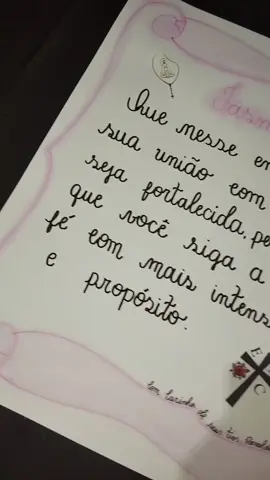 Jasm
Que nesse en
sua união com
seja fortalecida, pe
que você siga a
fé com mais intens
e propósito.
E
C
Com carinho de seus tios